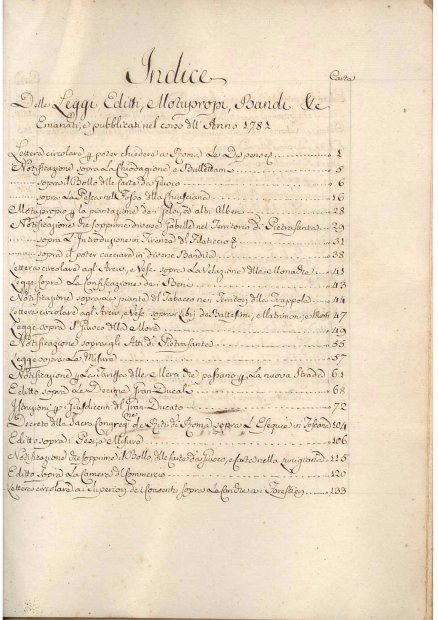 Indice
Carte
Delle Leggi Editti, Motupropi, Bandi &c
Emanati, e pubblicati nel corso dell'Anno 1781
Lettera circolare p poter chiedere a Roma Le Dispense 1
Notificazione sopra La Chiodagione e Bullettam 5
sopra il Bollo delle Carte da Giuoco 6
sopra La Pesca nell della Chiusciana 16
Motuproprio p la piantazione de Gelsi, ed altri Alberi 28
Notificazione che sopprime diverse Gabelle nel Territorio di Pietrasanta 29
sopra L'Introduzione in Firenze del 31
sopra il poter cacciare in diverse Bandite 38
Lettera circolare agli Arciv, e Vesc. sopra La Velazione delle Monache 41
Legge sopra La Confiscazione dei Beni 43
Notificazione sopra Le piante di Tabacco nei Territori della Trappola 44
Lettera circolare agli Arciv, e Vesc. sopra i Libri de Battesimi, e Matrimoni, e Morti 47
Legge sopra il Giuoco della Mora 49
Notificazione sopra gli Atti di Pietrasanta 55
Legge sopra Le Misure 57
Notificazione p La Tariffa delle Merci che passano p La nuova Strada 61
Editto sopra Le Decime Gran Ducali 68
Istruzioni p i Giusdicenti del Gran Ducato 72
Decreto della Sacra Congreg.ne de Riti di Roma sopra L'Esequie in Toscana 104
Editto sopra i Pesi, e Misure 106
Notificazione che sopprime il Bollo delle Carte da Giuoco, e Carte nella Lunigiana 115
Editto sopra La Camera di Commercio 120
Lettera circolare ai Superiori de Conventi sopra Le ai Forestieri 133